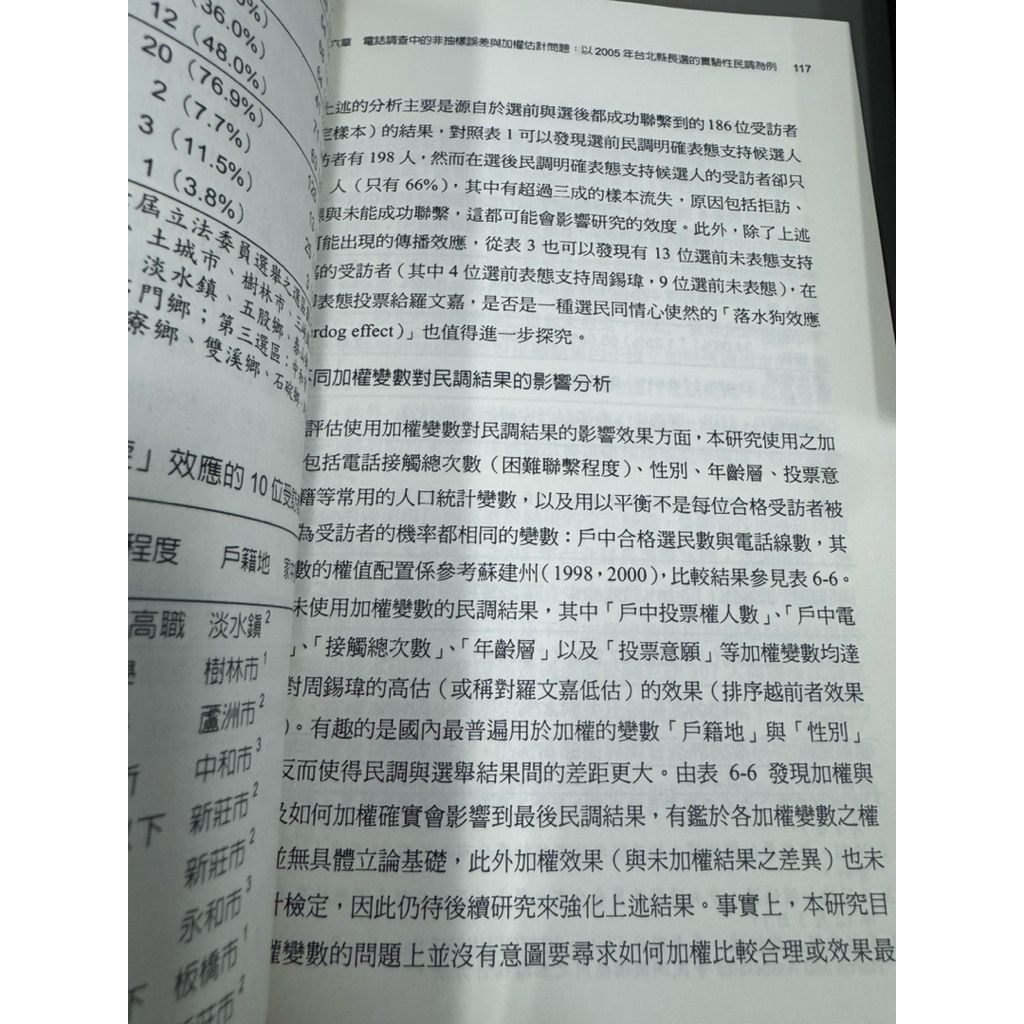 0%)
(36.0%)
12 (48.0%)
20 (76.9%)
2 (7.7%)
3 (11.5%)
1 (3.8%)
屆立法委員選舉之選區
、土城市、樹林市、三
淡水鎮、五股鄉、泰
門鄉；第三選區：中和
寮鄉、雙溪鄉、石碇鄉
」效應的 10 位受訪
程度 戶籍地 家
高職 淡水鎮2
樹林市1
蘆洲市2
中和市3
下 新莊市2
新莊市2
永和市3
板橋市1
莊市2
六章 電話調查中的非抽樣誤差與加權估計問題：以 2005 年台北縣長選的實驗性民調為例 117
上述的分析主要是源自於選前與選後都成功聯繫到的 186 位受訪者
定樣本）的結果，對照表 1 可以發現選前民調明確表態支持候選人
訪者有 198 人，然而在選後民調明確表態支持候選人的受訪者卻只
人（只有 66%），其中有超過三成的樣本流失，原因包括拒訪、
與未能成功聯繫，這都可能會影響研究的效度。此外，除了上述
可能出現的傳播效應，從表 3 也可以發現有 13 位選前未表態支持
的受訪者（其中 4 位選前表態支持周錫瑋，9 位選前未表態），在
表態投票給羅文嘉，是否是一種選民同情心使然的「落水狗效應
erdog effect）」也值得進一步探究。
不同加權變數對民調結果的影響分析
評估使用加權變數對民調結果的影響效果方面，本研究使用之加
包括電話接觸總次數（困難聯繫程度）、性別、年齡層、投票意
籍等常用的人口統計變數，以及用以平衡不是每位合格受訪者被
為受訪者的機率都相同的變數：戶中合格選民數與電話線數，其
數的權值配置係參考蘇建州（1998，2000），比較結果參見表 6-6。
未使用加權變數的民調結果，其中「戶中投票權人數」、「戶中電
」、「接觸總次數」、「年齡層」以及「投票意願」等加權變數均達
對周錫瑋的高估（或稱對羅文嘉低估）的效果（排序越前者效果
）。有趣的是國內最普遍用於加權的變數「戶籍地」與「性別」
反而使得民調與選舉結果間的差距更大。由表 6-6 發現加權與
及如何加權確實會影響到最後民調結果，有鑑於各加權變數之權
並無具體立論基礎，此外加權效果（與未加權結果之差異）也未
計檢定，因此仍待後續研究來強化上述結果。事實上，本研究目
權變數的問題上並沒有意圖要尋求如何加權比較合理或效果最